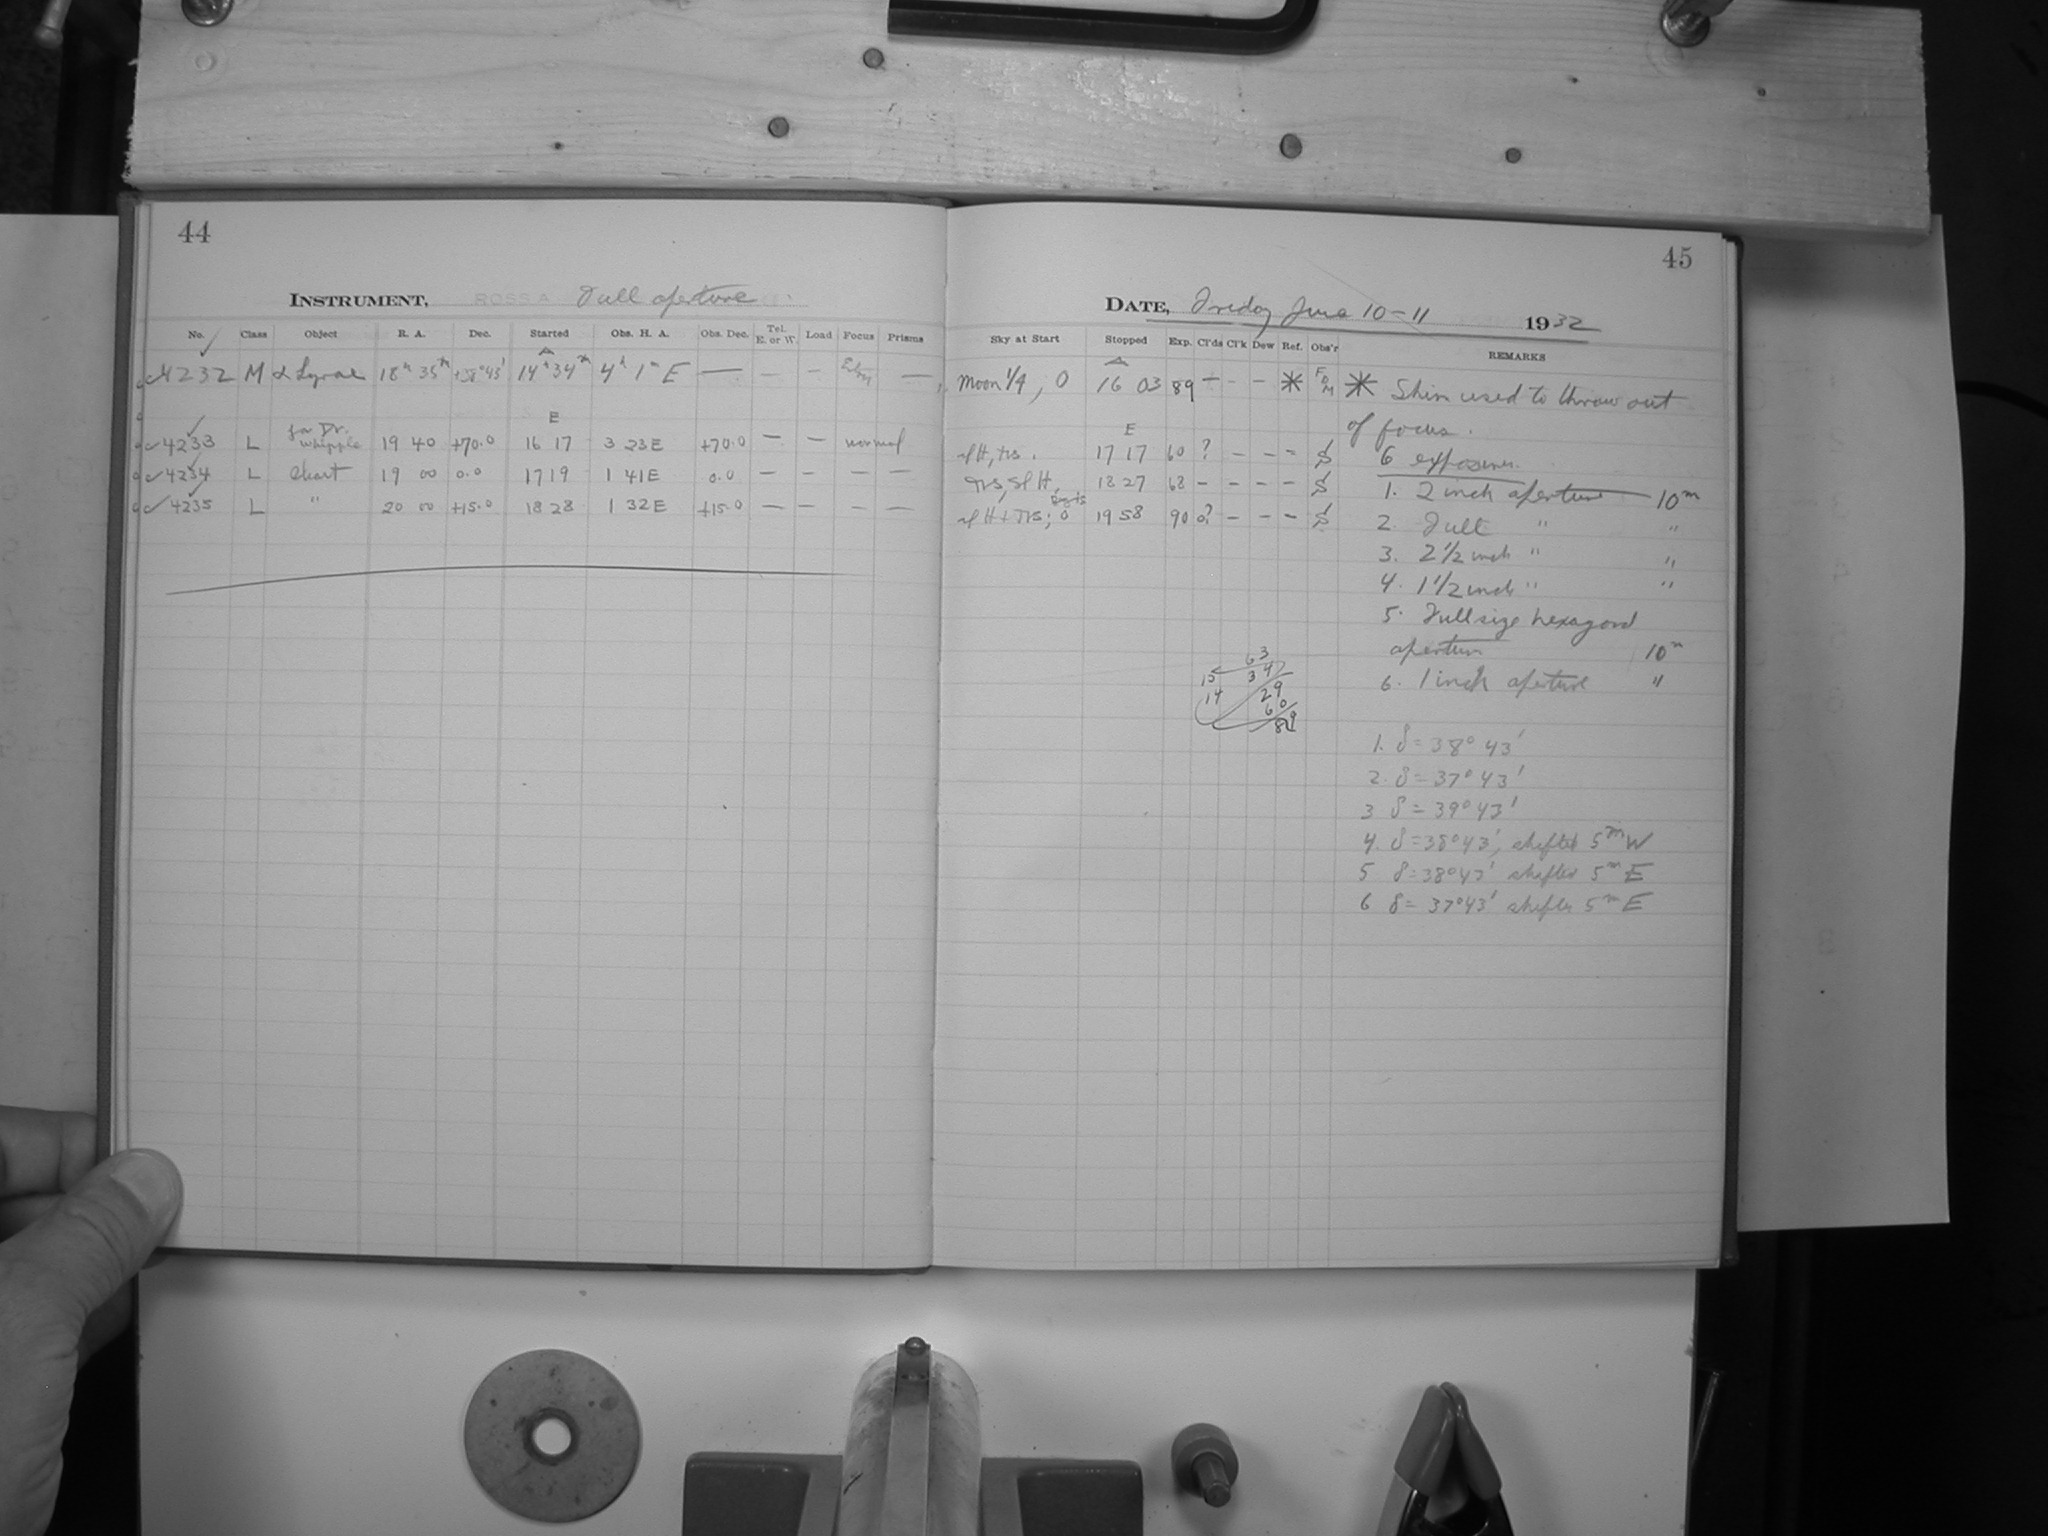 44
INSTRUMENT, ROSS A Full aperture
No. Class Object R. A. Dec. Started Obs. H. A. Obs. Dec. Tel. E. or W. Load Focus Prisms
A
4232 M α Lyrae 18h 35m +38°43' 14h 34m 4h 1m E — — — —
E
4233 L for Dr. Whipple 19 40 +70.0 16 17 3 23E +70.0 — — normal
4234 L Chart 19 00 0.0 17 19 1 41E 0.0 — — — —
4235 L " 20 00 +15.0 18 28 1 32E +15.0 — — — —
45
DATE, Friday June 10-11 1932
Sky at Start Stopped Exp. Cl'ds Cl'k Dew Ref. Obs'r REMARKS
A
Moon 1/4, 0 16 03 89 — - — * FDM * Shim used to throw out
of focus.
E
sl H, trs. 17 17 60 ? - - - S
6 exposures.
trs, sl H, 18 27 68 - - - - S
1. 2 inch aperture 10m
sl H + trs; 0 19 58 90 0? - - - S
2. Full " "
3. 2 1/2 inch " "
4. 1 1/2 inch " "
5. Full size hexagonal
aperture 10m
6. 1 inch aperture "
63
15 34
14 29
60
89
1. δ = 38° 43'
2. δ = 37° 43'
3 δ = 39° 43'
4. δ = 38° 43', shifted 5m W
5 δ = 38° 43' shifted 5m E
6 δ = 37° 43' shifted 5m E